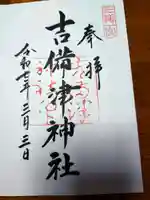 奉拝
吉備津神社
令和七年三月三日